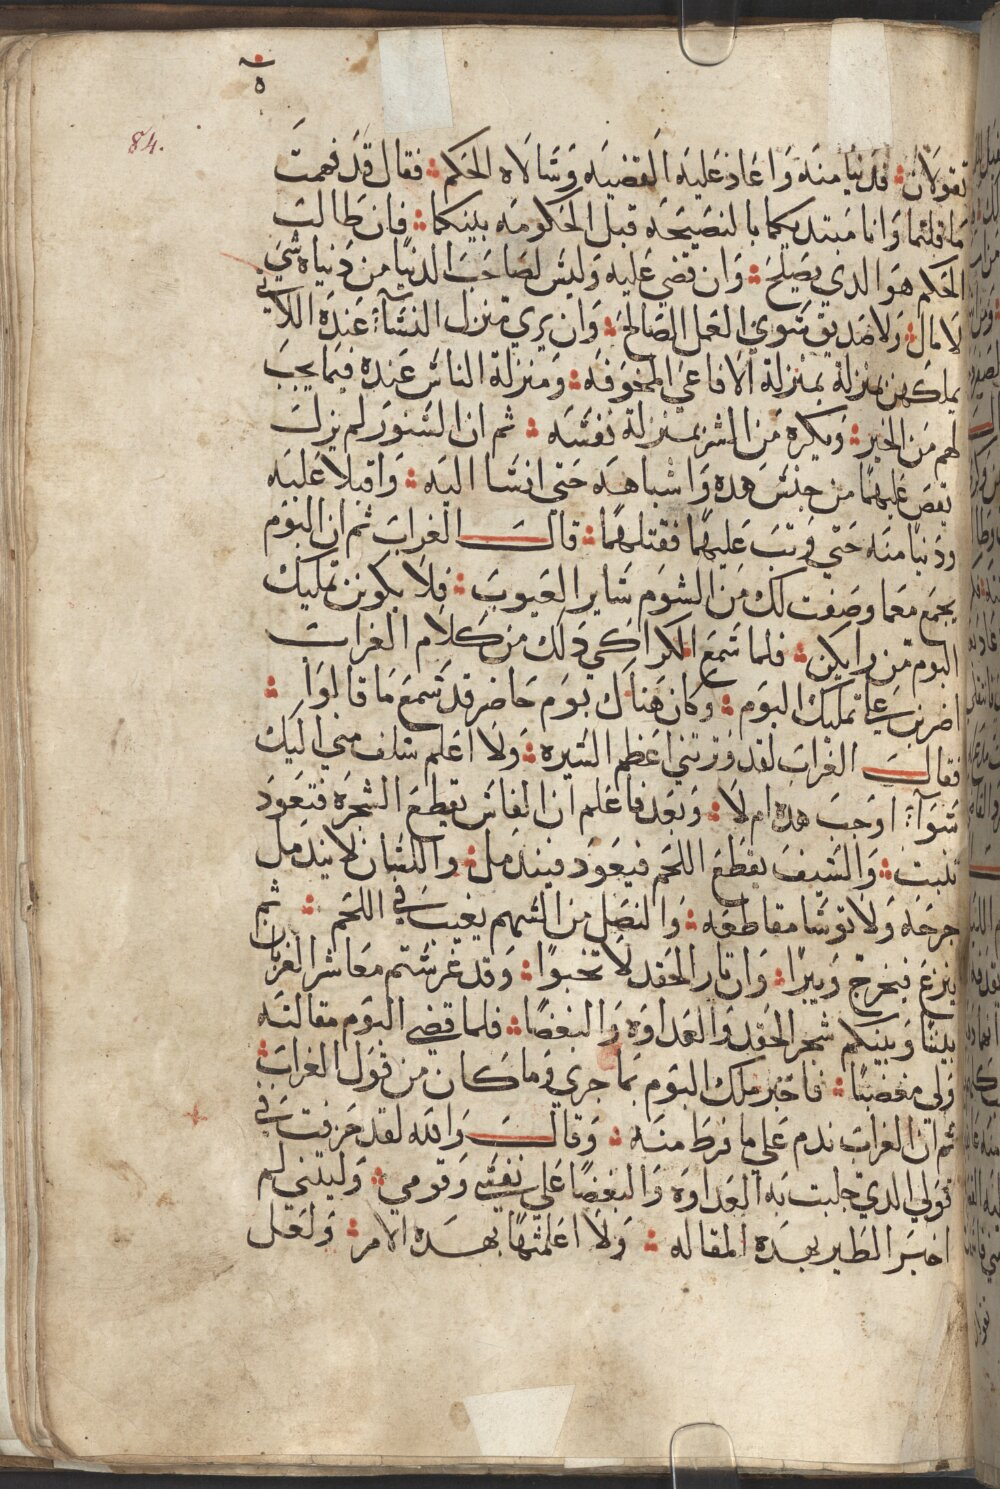 ٥
84.
تقولان ؞ فدنيا منه واعاد عليه القضيه وسالاه الحكم ؞ فقال قد فهمت
ما قلتما وانا مبتديكما بالنصيحه قبل الحكومه بينكما ؞ فان طالب
الحكم هو الدي يصلح ؞ وان قضي عليه وليس لصاحب الدنيا من دنياه شي
لا مال ؞ ولا صديق سوي العمل الصالح ؞ وان يري منزل النسآء عنده اللاتي
يملكهن بمنزلة بمنزلة الافاعي المخوفه ؞ ومنزلة الناس عنده فيما يحب
لهم من الخير ؞ ويكره من الشر بمنزلة نفسه ؞ ثم ان السنور لم يزل
يقص عليهما من جنس هده واشباهه حتي انسا اليه ؞ واقبلا عليه
ودنيا منه حتي وثب عليهما فقتلهما ؞ قال الغراب ثم ان البوم
يجمع معما وصفت لك من الشوم ساير العيوب ؞ فلا يكونن تمليك
البوم من رايكن ؞ فلما سمع الكراكي دلك من كلام الغراب
اضربن علي تمليك البوم ؞ وكان هناك بوم حاضر قد سمع ما قالوا ؞
فقال الغراب لقد وترتني اعظم التيره ؞ ولا اعلم سلف مني اليك
سوآء اوجب هدا ام لا ؞ وبعد فاعلم ان الفاس يقطع الشجره فتعود
تنبت ؞ والسيف يقطع اللحم فيعود فيندمل ؞ واللسان لا يندمل
جرحه ولا توسا مقاطعه ؞ والنصل من السهم يغيب في اللحم ؞ ثم
ينزع فيخرج ويبرا ؞ وان نار الحقد لا تخبوا ؞ وقد غرستم معاشر الغربان
بيننا وبينكم شجر الحقد والعداوه والبغضا ؞ فلما قضي البوم مقالته
ولي مغضبا ؞ فاخبر ملك البوم بما جري وما كان من قول الغراب ؞
ثم ان الغراب ندم علي ما فرط منه ؞ وقال والله لقد خرفت في
قولي الدي جلبت به العداوه والبغضا علي نفسي وقومي ؞ وليتني لم
اخبر الطير بهده المقاله ؞ ولا اعلمتها بهده الامر ؞ ولعل